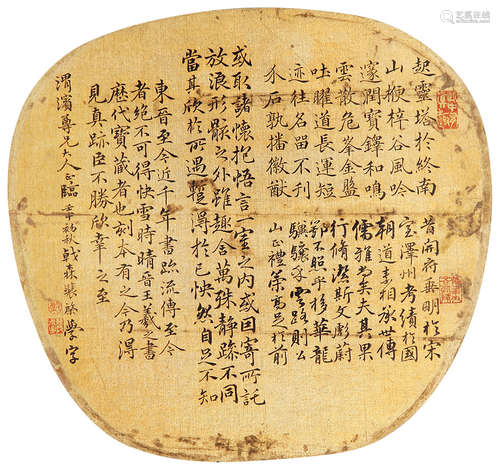 起靈塔於終南
山梗梓谷風吟
邃澗寶鐸和鳴
雲散危峯金盤
吐曜道長運短
迹往名留不刊
介石孰播徽猷
昔開府垂明於宋
室澤州考績於國
朝道素相承世傳
儒雅尚矣夫其果
行脩潔斯文彪蔚
鄂不照乎移華龍
驥驤乎雲路則公
山正禮策高足於前
或取諸懷抱悟言一室之內或因寄所託
放浪形骸之外雖趣舍萬殊靜躁不同
當其欣於所遇蹔得於己怏然自足不知
東晉至今近千年書跡流傳至今
者絕不可得快雪時晴晉王羲之書
歷代寶藏者也刻本有之今乃得
見真跡臣不勝欣幸之至
渭濱尊兄大人正臨